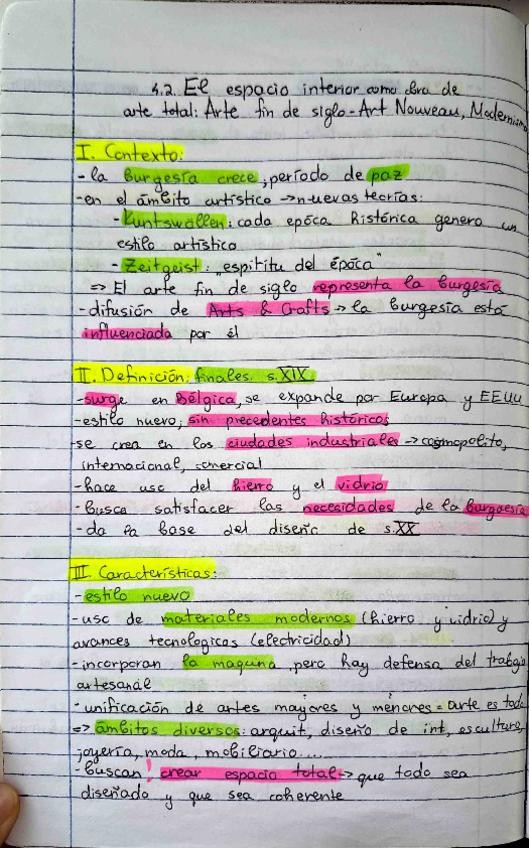 4.2. El espacio interior como obra de
arte total: Arte fin de siglo - Art Nouveau, Modernismo
I. Contexto:
- la burgesía crece, período de paz
- en el ámbito artístico → nuevas teorías:
- Kuntswollen: cada época histórica genero un
estilo artístico
- Zeitgeist: "espiritu del época"
⇒ El arte fin de siglo representa la burgesía
- difusión de Arts & Crafts → la burgesía está
influenciada por él
II. Definición: finales s.XIX
- surge en Bélgica, se expande por Europa y EEUU
- estilo nuevo, sin precedentes históricos
- se crea en las ciudades industriales → cosmopolito,
internacional, comercial
- hace uso del hierro y el vidrio
- busca satisfacer las necesidades de la burgaesía
- da la base del diseño de s.XX
III. Características:
- estilo nuevo
- uso de materiales modernos (hierro y vidrio) y
avances tecnologicos (electricidad)
- incorporan la maquina, pero hay defensa del trabajo
artesanal
- unificación de artes mayores y menores = arte es todo
⇒ ámbitos diversos: arquit, diseño de int, escultura,
joyería, moda, mobiliario...
- buscan! crear espacio total → que todo sea
diseñado y que sea coherente